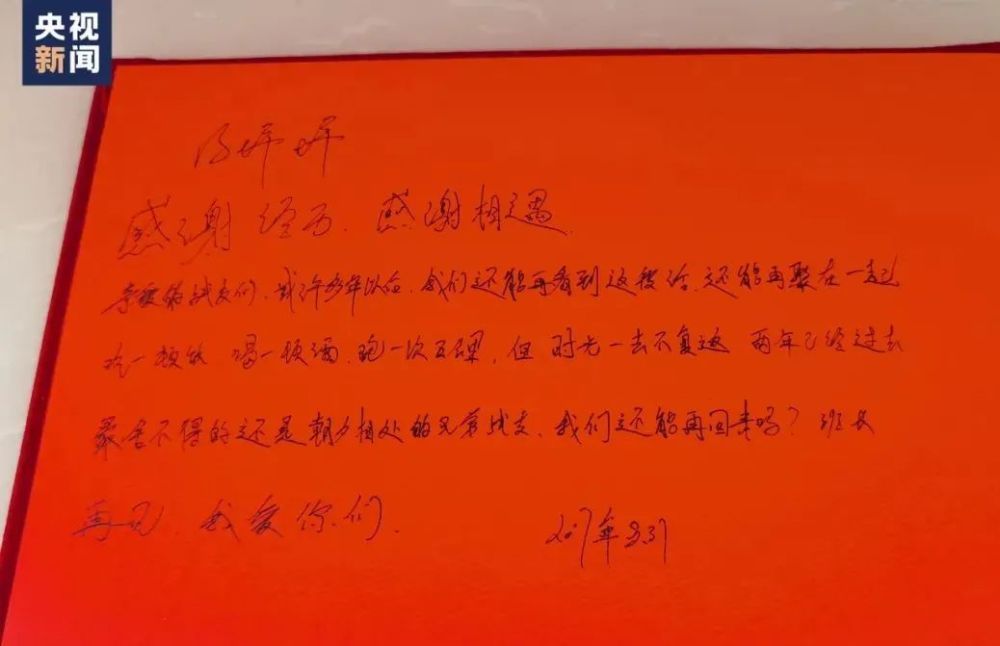 央视
新闻
冯婷婷
感谢经历.感谢相遇.
亲爱的战友们.或许多年以后.我们还能再看到这段话.还能再聚在一起
吃一顿饭 喝一顿酒.跑一次五公里.但时光一去不复返 两年已经过去
最舍不得的还是朝夕相处的兄弟战友.我们还能再回来吗?班长
再见.我爱你们.
2017年8.31